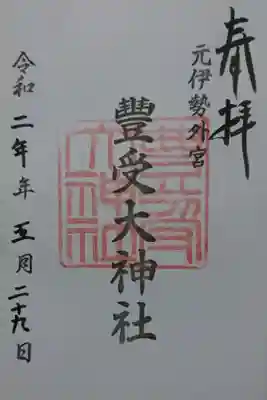 奉拝
元伊勢外宮
豐受大神社
令和二年年五月二十九日